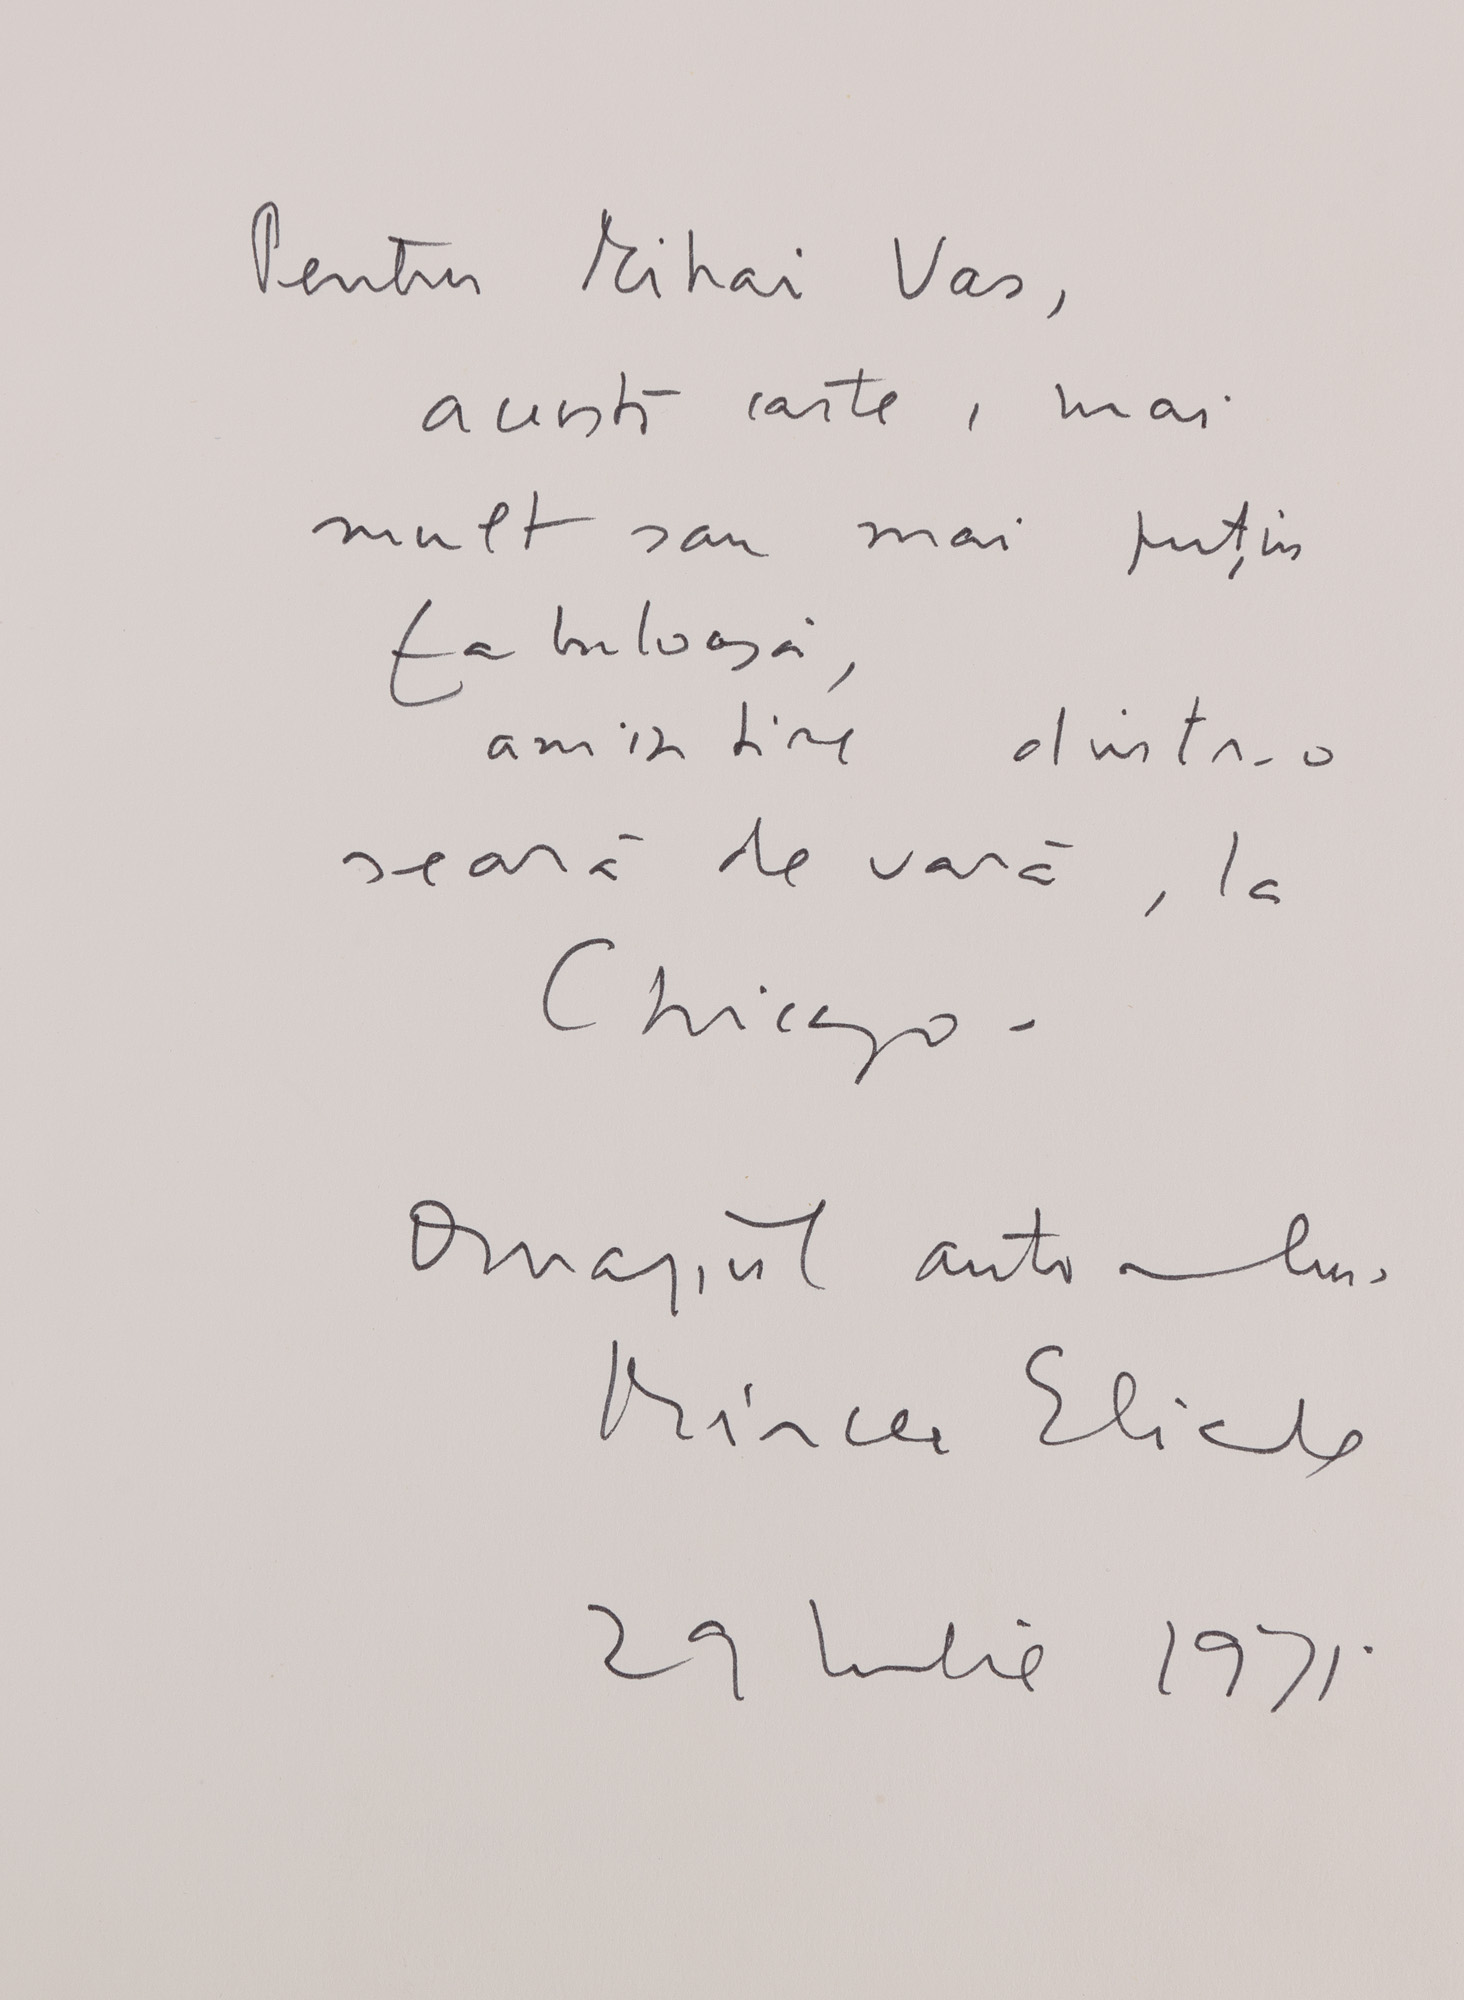 Pentru Mihai Vas,
această carte, mai
mult sau mai puțin
fabuloasă,
amintire dintr-o
seară de vară, la
Chicago -
Omagiul autorului
Mircea Eliade
29 Iulie 1971.